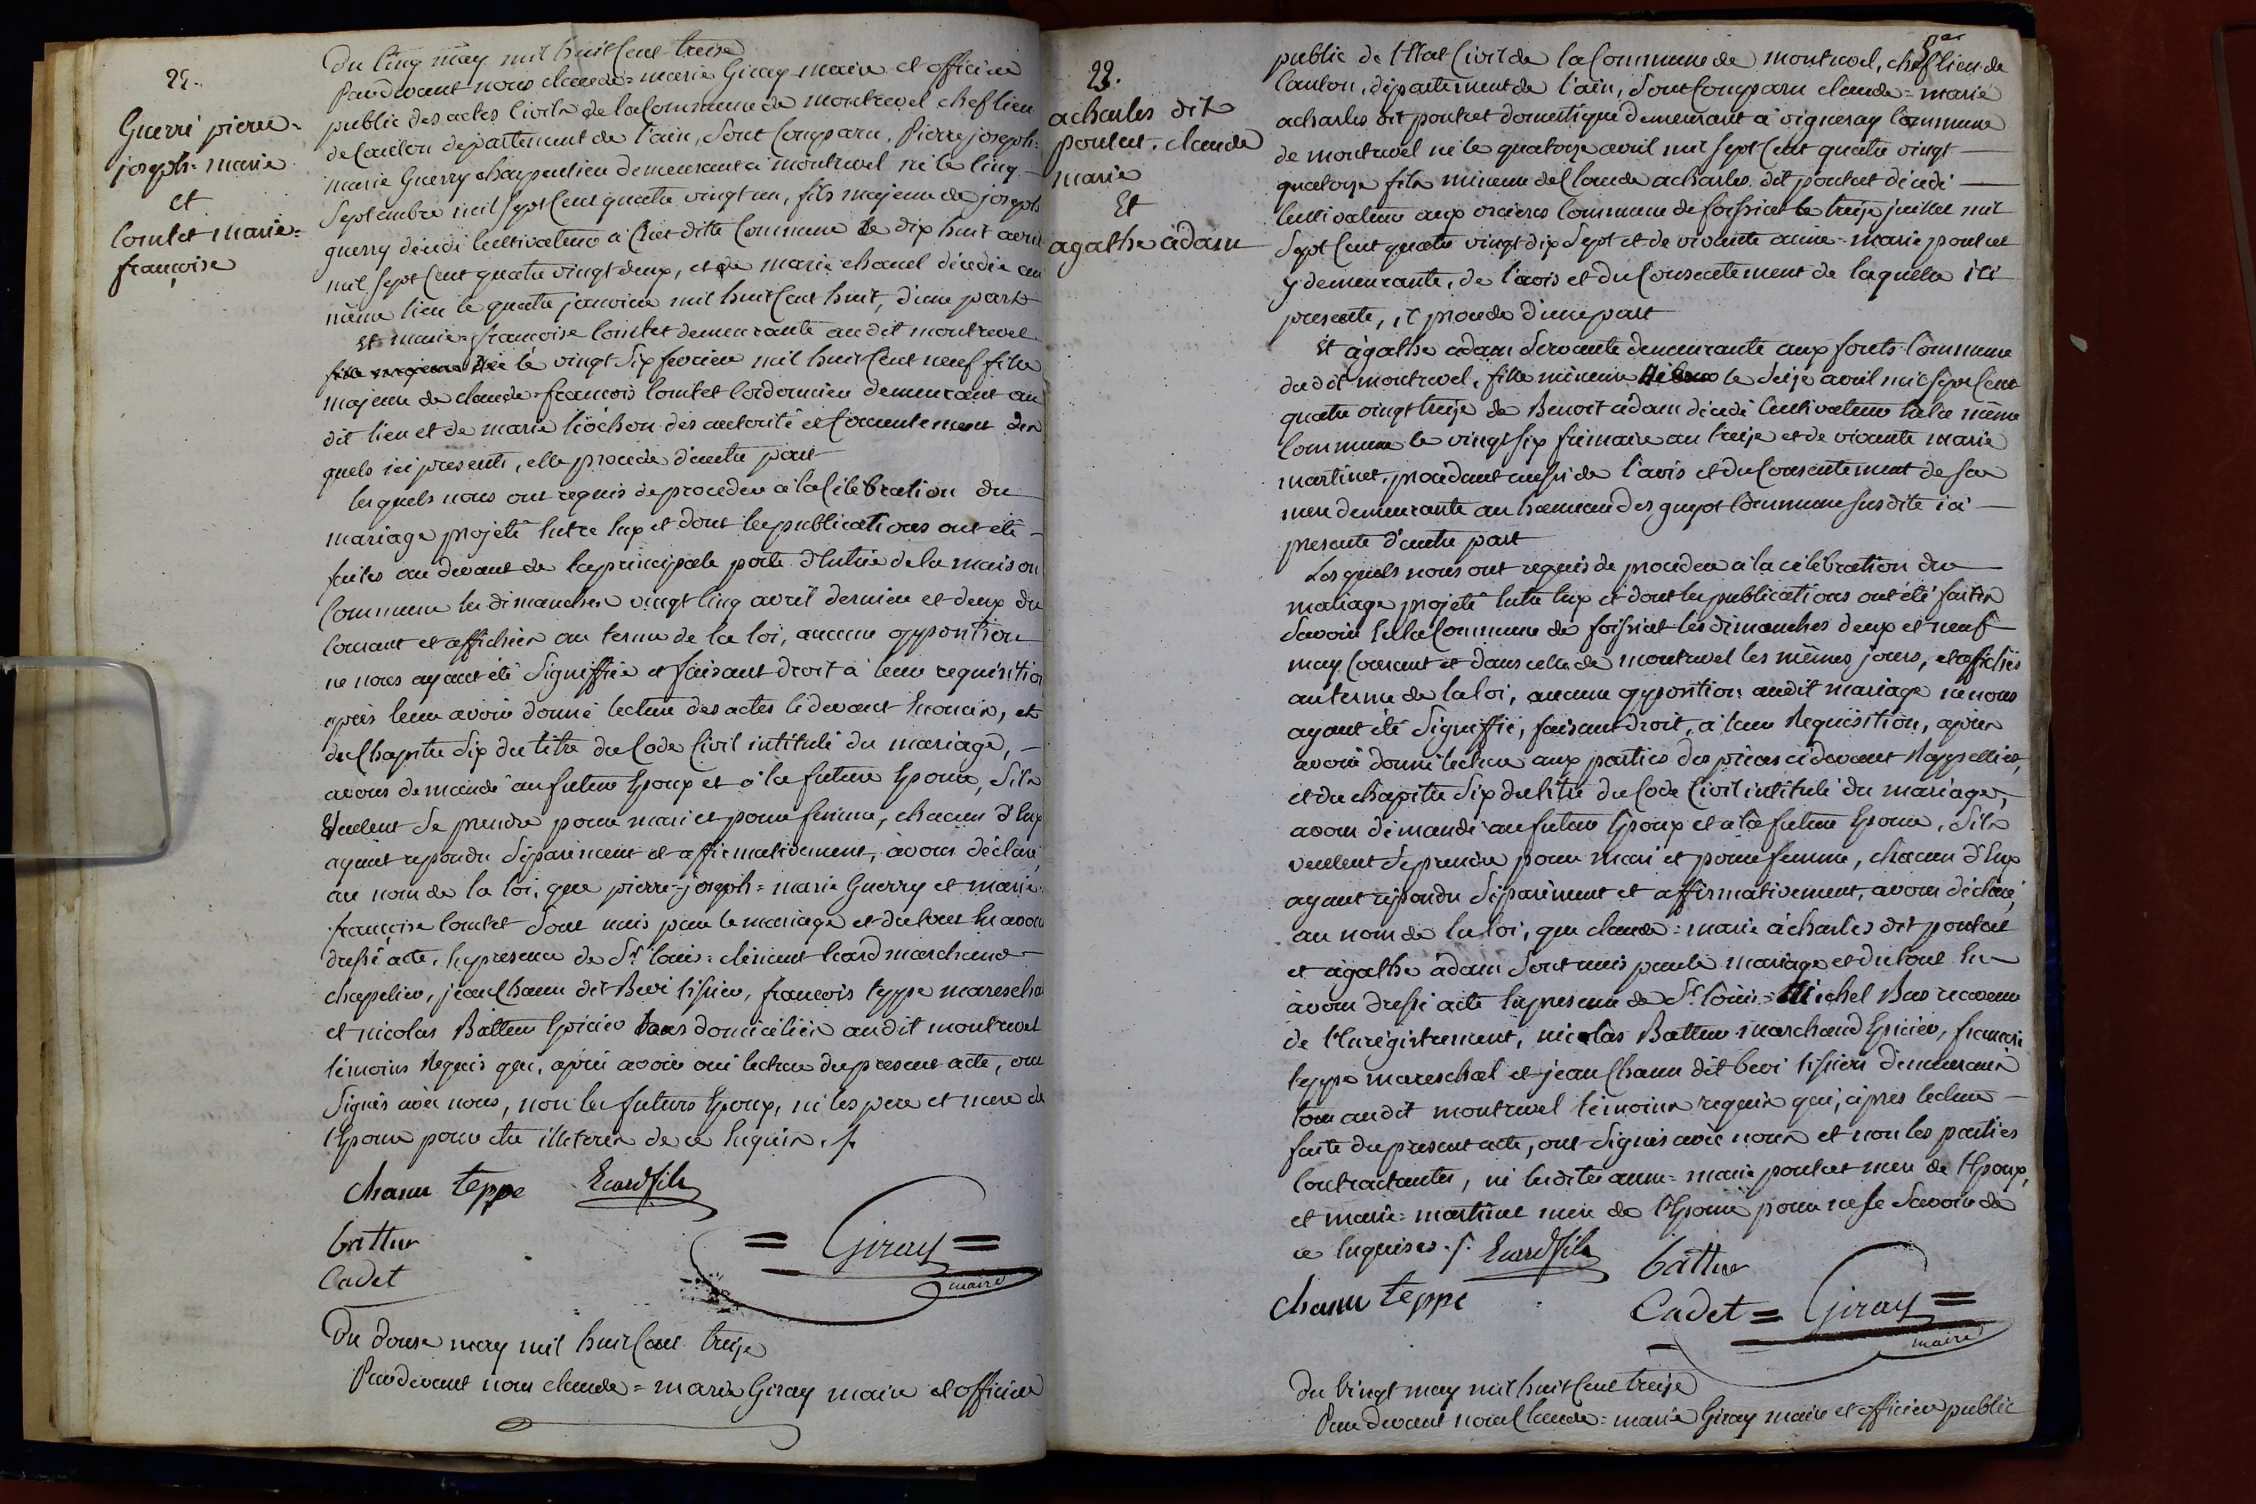 22.
Guerri pierre=
joseph=marie
et
Comtet marie=
françoise
Du Cinq may mil huit Cent treise
Pardevant nous claude=marie Giray maire et officier
public des actes Civils de la Commune de montrevel chef lieu
de Canton departement de l'ain, sont Comparu, Pierre joseph=
marie Guerry charpentier demeurant à montrevel né le Cinq
Septembre mil sept Cent quatre vingt un, fils majeur de joseph
guerry décédé Cultivateur à dite Commune le dix huit avril
mil sept Cent quatre vingt deux, et de marie chanel décédée au
même lieu le quatre janvier mil huit Cent huit, d'une part
et marie=françoise Comtet demeurante audit montrevel
fille majeure née le vingt six fevrier mil huit Cent neuf fille
majeure de claude=françois Comtet Cordonnier demeurant au
dit lieu et de marie liochon des autorité et Consentement des
quels ici presents, elle procède d'autre part
lesquels nous ont requis de proceder à la Célébration du
mariage projeté Entre Eux et dont les publications ont été
faites au devant de la principale porte d'Entrée de la maison
Commune les dimanches vingt Cinq avril dernier et deux du
Courant et affichées au terme de la loi, aucune opposition
ne nous ayant été Signiffiée et faisant droit à leur requisition
après leur avoir donné lecture des actes Cidevant Enoncés, et
du Chapitre Six du titre du Code Civil intitulé du mariage,
avons demandé au futur Epoux et à la future Epouse, S'ils
Veulent Se prendre pour mari et pour femme, chacun d'Eux
ayant repondu Séparément et affirmativement, avons déclaré,
au nom de la loi, que pierre=joseph=marie Guerry et marie=
françoise Comtet Sont unis par le mariage et du tout En avons
dressé acte, En presence de Sr. louis=clément Ecard marchand
chapelier, jean Chanu dit Bevi tissier, francois teppe mareschal
et nicolas Battur Epicier tous domiciliés audit montrevel
témoins Requis qui, après avoir oui lecture du present acte, ont
Signés avec nous, non les futurs Epoux, ni les pere et mere de
l'Epouse pour etre illeterés de ce Enquis ./.
Chanu teppe Ecard fils
battur
Cadet
= Giray =
maire
Du douse may mil huit Cent treise
Pardevant nous claude=marie Giray maire et officier
22.
acharles dit
poutet, claude
marie
Et
agathe àdam
public de l'Etat Civil de la Commune de montrevel, chef lieu de
Canton, département de l'ain, Sont Comparu claude=marie
acharles dit poutet domestique demeurant à vigneray Commune
de montrevel né le quatorze avril mil sept Cent quatre vingt
quatorze fils mineur de Claude acharles dit poutet décédé
Cultivateur aux Commune de foissiat le treize juillet mil
Sept Cent quatre vingt dix Sept et de vivante anne=marie poutet
y demeurante, de l'avis et du Consentement de laquelle ici
presente, il procede d'une part
Et àgathe àdam Servante demeurante aux forets Commune
du dit montrevel, fille mineure le Seize avril mil sept Cent
quatre vingt treize de Benoit àdam décédé Cultivateur En la même
Commune le vingt six frimaire an treize et de vivante marie
martinet, procédant aussi de l'avis et du Consentement de sa
mere demeurante au hameau des guyot Commune Susdite ici
presente d'autre part
Lesquels nous ont requis de proceder à la célébration du
mariage projeté Entre Eux et dont les publications ont été faites
Savoir En la Commune de foissiat les dimanches deux et neuf
may Courant et dans celle de montrevel les mêmes jours, et affichées
au terme de la loi, aucune opposition audit mariage ne nous
ayant été Signiffié, faisant droit, à leur Requisition, après
avoir donné lecture aux parties des pièces cidevant Rappellées,
et du chapitre Six du titre du Code Civil intitulé du mariage,
avons demandé au futur Epoux et à la future Epouse, S'ils
veulent Se prendre pour mari et pour femme, chacun d'Eux
ayant répondu Séparément et affirmativement, avons déclaré,
au nom de la loi, que claude=marie àcharles dit poutet
et àgathe àdam Sont unis par le mariage et du tout En
avons dressé acte En presence de Sr. louis=Michel Bas receveur
de l'Enrégistrement, nicolas Battur marchand Epicier, francois
teppe mareschal et jean Chanu dit bevi tissier demeurant
tous audit montrevel témoins requis qui, après lecture
faite du present acte, ont Signés avec nous et non les parties
Contractantes, ni lesdites anne=marie poutet mere de l'Epoux,
et marie=martinet mere de l'Epouse pour ne le Savoir de
ce Enquises ./. Ecard fils battur
Chanu teppe Cadet = Giray =
maire
Du Vingt may mil huit Cent treise
Par devant nous Claude=marie Giray maire et officier public